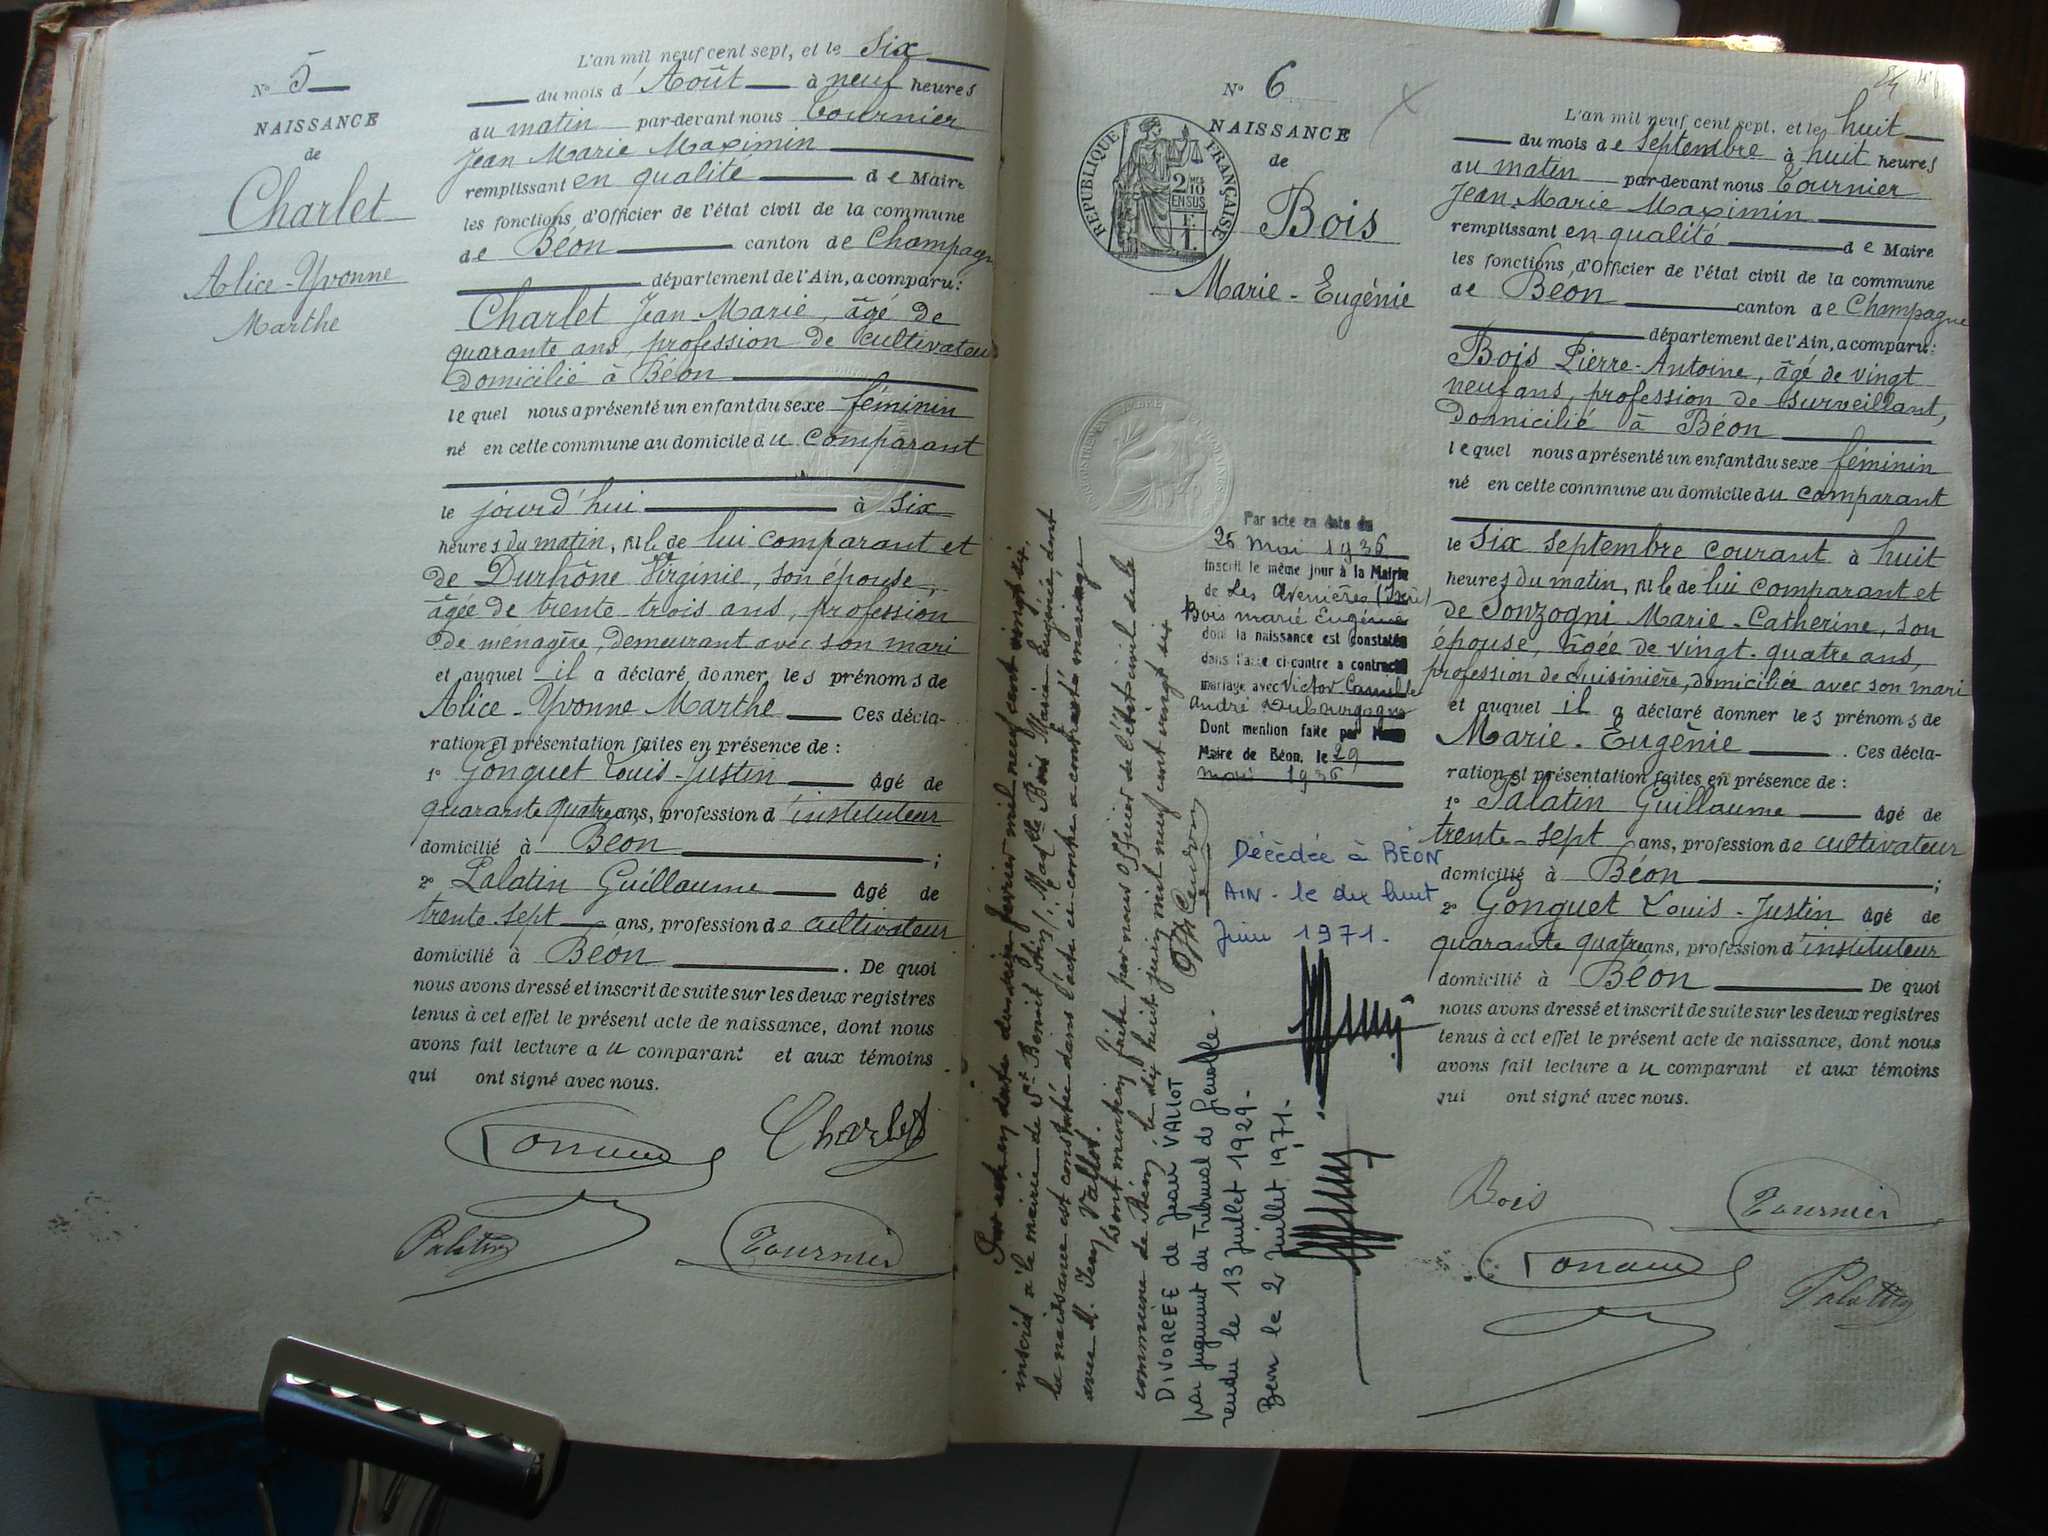 N° 5
NAISSANCE
de
Charlet
Alice-Yvonne
Marthe
L'an mil neuf cent sept, et le six
du mois d'Août à neuf heures
du matin par-devant nous Tournier
Jean Marie Maximin
remplissant en qualité de Maire
les fonctions d'Officier de l'état civil de la commune
de Béon canton de Champagne
département de l'Ain, a comparu:
Charlet Jean Marie, âgé de
quarante ans, profession de cultivateur
domicilié à Béon
lequel nous a présenté un enfant du sexe féminin
né en cette commune au domicile du comparant
le jourd'hui à six
heures du matin, fille de lui comparant et
de Durhône Virginie, son épouse,
âgée de trente trois ans, profession
de ménagère, demeurant avec son mari
et auquel il a déclaré donner les prénoms de
Alice-Yvonne Marthe Ces décla-
ration et présentation faites en présence de:
1° Gonguet Louis-Justin âgé de
quarante quatre ans, profession d'instituteur
domicilié à Béon ;
2° Palatin Guillaume âgé de
trente-sept ans, profession de cultivateur
domicilié à Béon . De quoi
nous avons dressé et inscrit de suite sur les deux registres
tenus à cet effet le présent acte de naissance, dont nous
avons fait lecture au comparant et aux témoins
qui ont signé avec nous.
Charlet
Palatin
Tournier
N° 6
NAISSANCE
de
Bois
Marie-Eugénie
RÉPUBLIQUE FRANÇAISE
2/10
EN SUS
Par acte en date du
26 Mai 1936
inscrit le même jour à la Mairie
de Les Avenières (Isère)
Bois marié Eugénie
dont la naissance est constatée
dans l'acte ci-contre a contracté
mariage avec Victor Camille
André Dubourgogne
Dont mention faite par Nous
Maire de Béon, le 29
mai 1936
Décèdée à BEON
AIN - le dix huit
Juin 1971.
Par acte en date du dix février mil neuf cent vingt six,
inscrit à la mairie de St Benoit (Ain), Madlle Bois Marie Eugénie, dont
la naissance est constatée dans l'acte ci-contre a contracté mariage
avec M. Jean Vallot.
Dont mention faite par nous Officier de l'état civil de la
commune de Béon, le dix huit juin mil neuf cent vingt six
DIVORÉE de Jean VALLOT
par jugement du Tribunal de Grenoble.
rendu le 13 Juillet 1929.
Beon le 2 Juillet 1971.
L'an mil neuf cent sept, et le huit
du mois de septembre à huit heures
du matin par-devant nous Tournier
Jean-Marie Maximin
remplissant en qualité de Maire
les fonctions d'Officier de l'état civil de la commune
de Béon canton de Champagne
département de l'Ain, a comparu:
Bois Pierre-Antoine, âgé de vingt
neuf ans, profession de surveillant,
domicilié à Béon
lequel nous a présenté un enfant du sexe féminin
né en cette commune au domicile du comparant
le six septembre courant à huit
heures du matin, fille de lui comparant et
de Sonzogni Marie-Catherine, son
épouse, âgée de vingt-quatre ans,
profession de cuisinière, domiciliée avec son mari
et auquel il a déclaré donner les prénoms de
Marie-Eugénie . Ces décla-
ration et présentation faites en présence de:
1° Palatin Guillaume âgé de
trente-sept ans, profession de cultivateur
domicilié à Béon ;
2° Gonguet Louis-Justin âgé de
quarante quatre ans, profession d'instituteur
domicilié à Béon De quoi
nous avons dressé et inscrit de suite sur les deux registres
tenus à cet effet le présent acte de naissance, dont nous
avons fait lecture au comparant et aux témoins
qui ont signé avec nous.
Bois
Tournier
Palatin